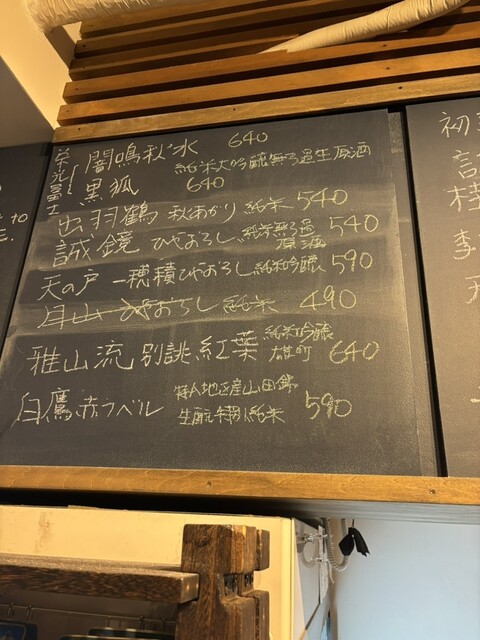 to
栄光冨士
闇鳴秋水 640
純米大吟醸無ろ過生原酒
黒狐 640
出羽鶴 秋あがり 純米 540
誠鏡 ひやおろし 純米無ろ過原酒 540
天の戸 一穂積ひやおろし純米吟醸 590
月山 ひやおろし 純米 490
雅山流 別誂紅葉 純米吟醸 雄町 640
白鷹赤ラベル 特A地区産山田錦
生酛特別純米 590
初
桂
李